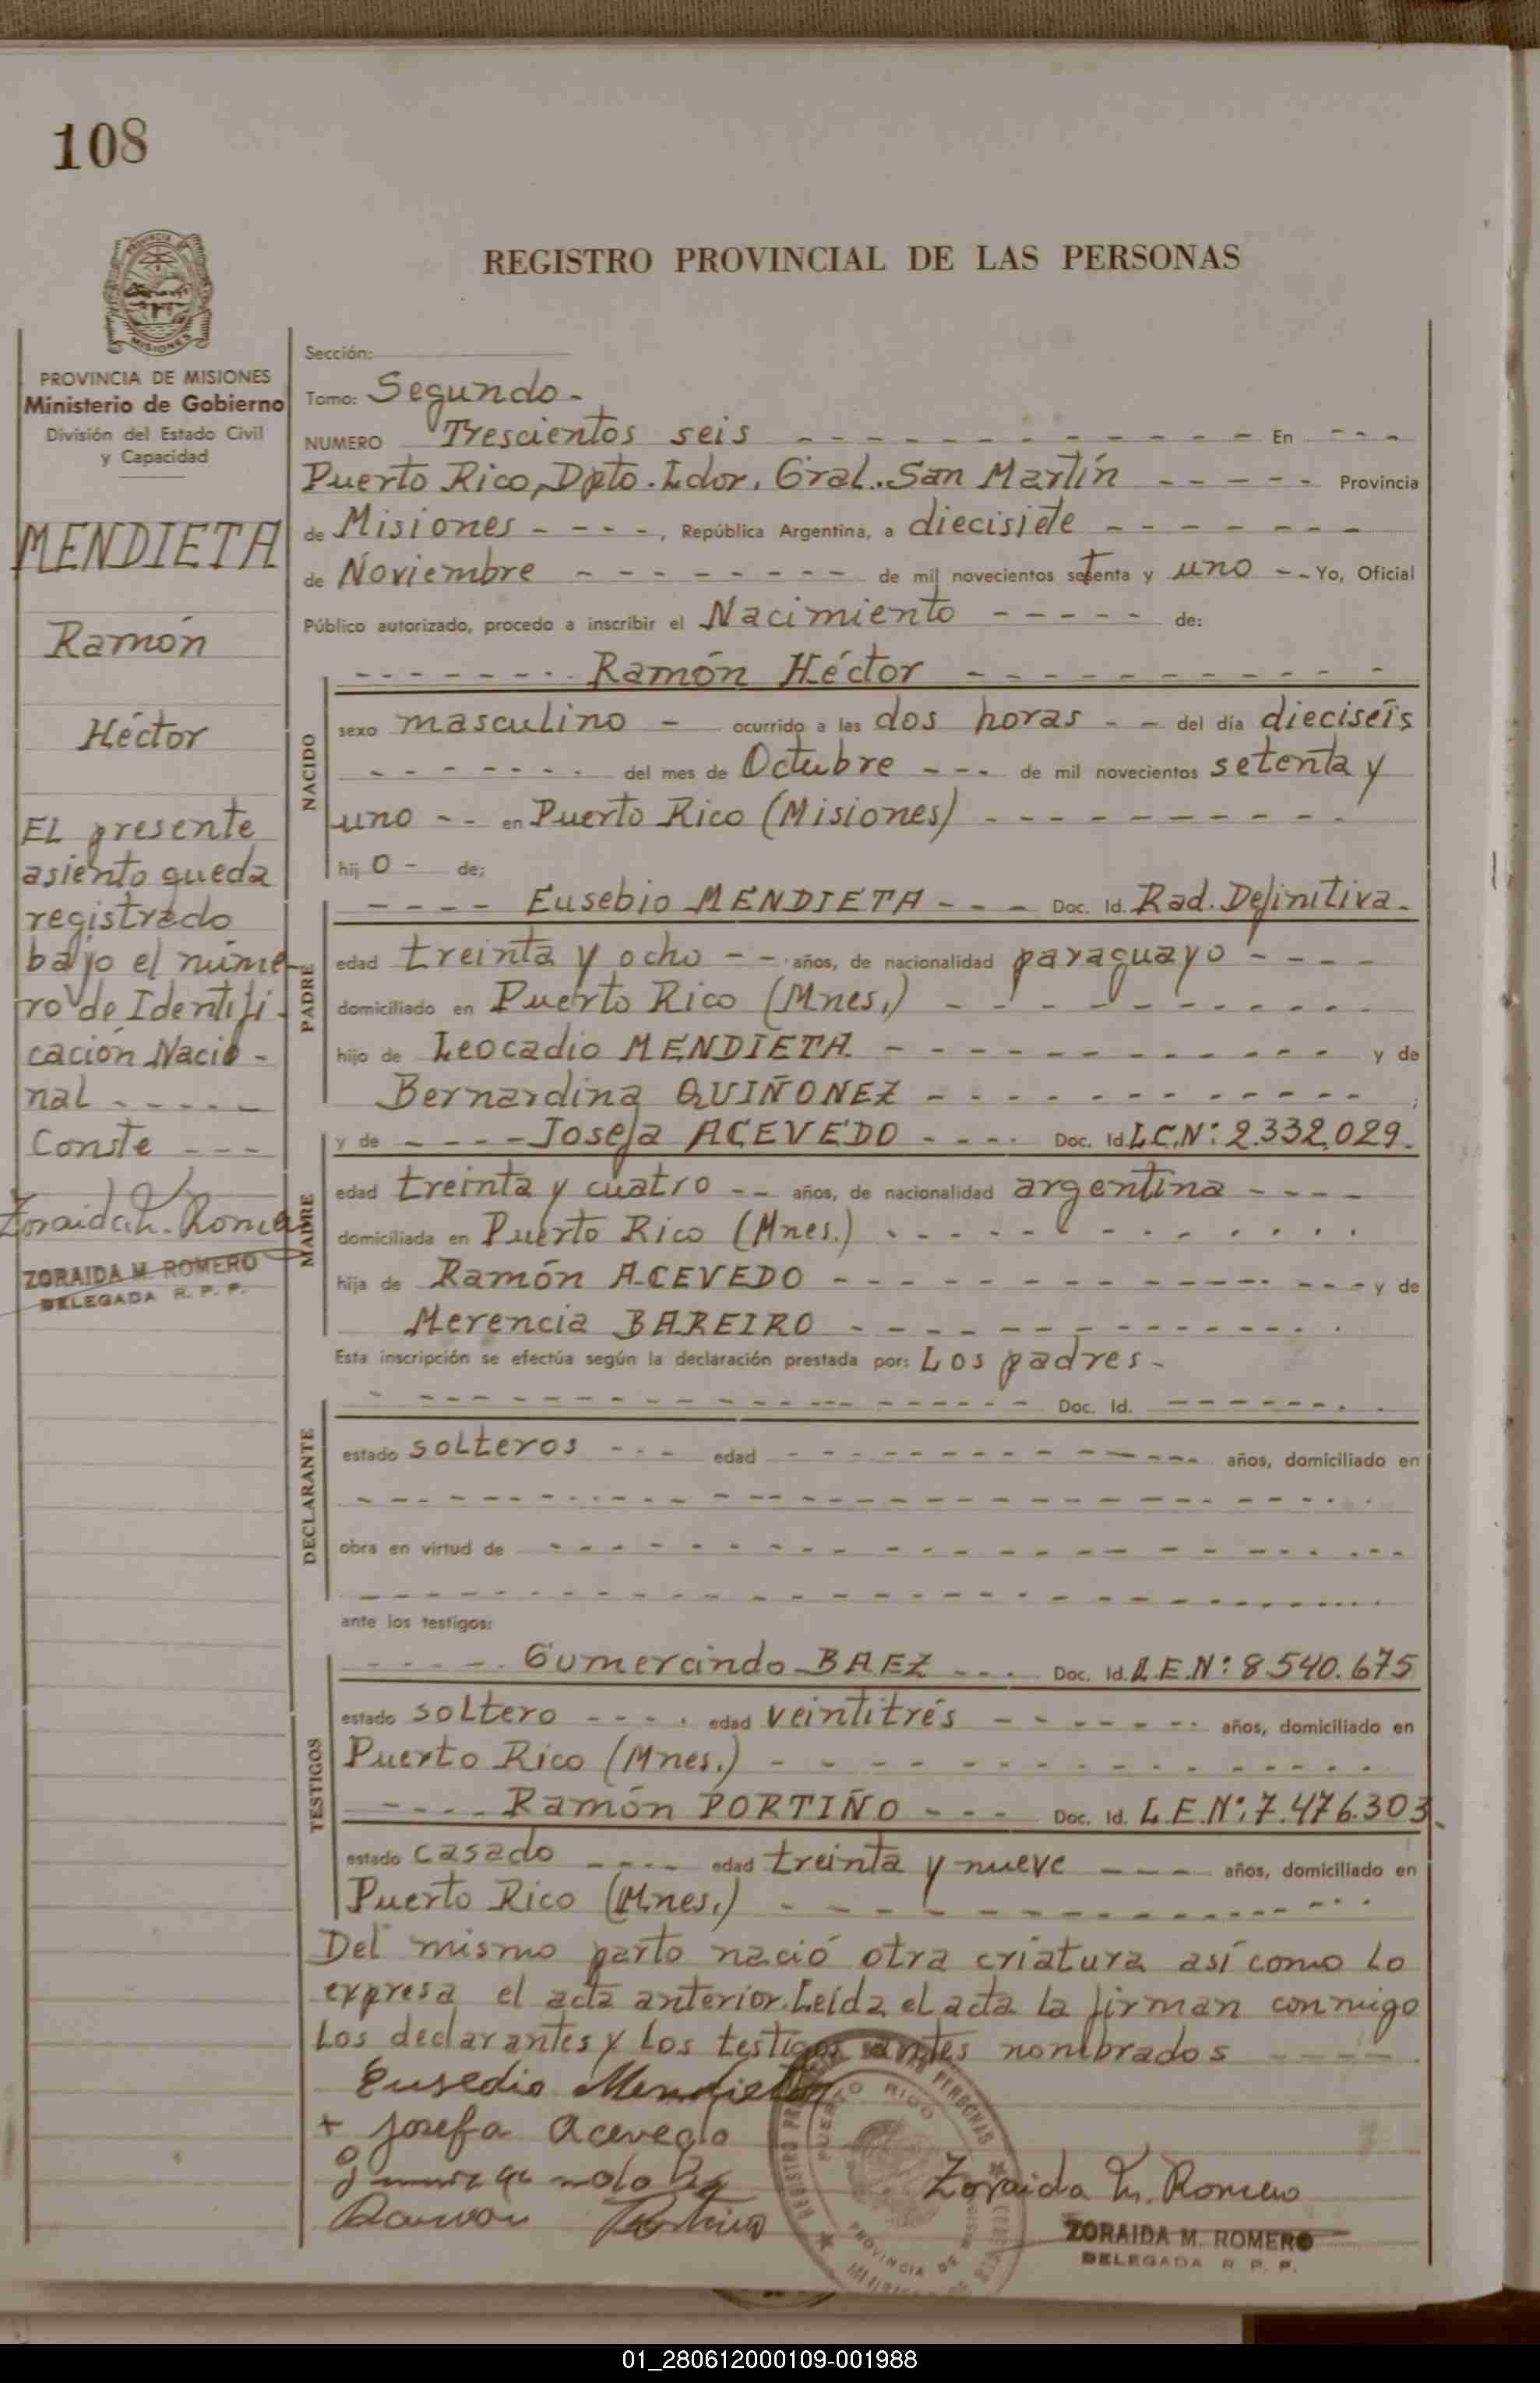 108
REGISTRO PROVINCIAL DE LAS PERSONAS
PROVINCIA DE
MISIONES
PROVINCIA DE MISIONES
Ministerio de Gobierno
División del Estado Civil
y Capacidad
MENDIETA
Ramón
Héctor
EL presente
asiento queda
registrado
bajo el núme-
ro de Identifi-
cación Nacio-
nal - - - - -
Conste - - -
Zoraida M. Romero
ZORAIDA M. ROMERO
DELEGADA R. P. P.
Sección:
Tomo: Segundo.-
NUMERO Trescientos seis - - - - - - - - - - - - En - - - -
Puerto Rico, Dpto. Ldor. Gral. San Martín - - - - - Provincia
de Misiones - - - -, República Argentina, a diecisiete - - - - - - -
de Noviembre - - - - - - - - - de mil novecientos setenta y uno - - Yo, Oficial
Público autorizado, procedo a inscribir el Nacimiento - - - - - de:
- - - - - - - - Ramón Héctor - - - - - - - - - - -
NACIDO
sexo masculino - ocurrido a las dos horas - - del día dieciseis
- - - - - - - - del mes de Octubre - - - de mil novecientos setenta y
uno - - en Puerto Rico (Misiones) - - - - - - - - - -
hij o - de;
PADRE
- - - - Eusebio MENDIETA - - - Doc. Id. Rad. Definitiva.
edad treinta y ocho - - años, de nacionalidad paraguayo - - - -
domiciliado en Puerto Rico (Mnes.) - - - - - - - - - - -
hijo de Leocadio MENDIETA - - - - - - - - - - - - y de
Bernardina QUIÑONEZ - - - - - - - - - - - - ;
MADRE
y de - - - - Josefa ACEVEDO - - - - Doc. Id. L.C.Nº: 2.332.029.
edad treinta y cuatro - - años, de nacionalidad argentina - - - -
domiciliada en Puerto Rico (Mnes.) - - - - - - - - - - - -
hija de Ramón ACEVEDO - - - - - - - - - - - - - - y de
Merencia BAREIRO - - - - - - - - - - - - - -
Esta inscripción se efectúa según la declaración prestada por: Los padres.-
DECLARANTE
- - - - - - - - - - - - - - - - - Doc. Id. - - - - - - - -
estado solteros - - - edad - - - - - - - - - - - - - años, domiciliado en
- - - - - - - - - - - - - - - - - - - - - - - -
obra en virtud de - - - - - - - - - - - - - - - - - - -
- - - - - - - - - - - - - - - - - - - - - - - -
ante los testigos:
TESTIGOS
- - - - - Gumercindo BAEZ - - - Doc. Id. L.E.Nº: 8.540.675
estado soltero - - - - edad veintitrés - - - - - - - años, domiciliado en
Puerto Rico (Mnes.) - - - - - - - - - - - - - - -
- - - - Ramón PORTIÑO - - - Doc. Id. L.E.Nº: 7.476.303.
estado casado - - - - edad treinta y nueve - - - años, domiciliado en
Puerto Rico (Mnes.) - - - - - - - - - - - - - -
Del mismo parto nació otra criatura así como lo
expresa el acta anterior. Leída el acta la firman conmigo
los declarantes y los testigos antes nombrados - - - -
Eusedio Mendieta
+ Josefa Acevedo
Ramon Portiño
PUERTO RICO
PROVINCIA DE
Zoraida M. Romero
ZORAIDA M. ROMERO
DELEGADA R. P. P.
01_280612000109-001988